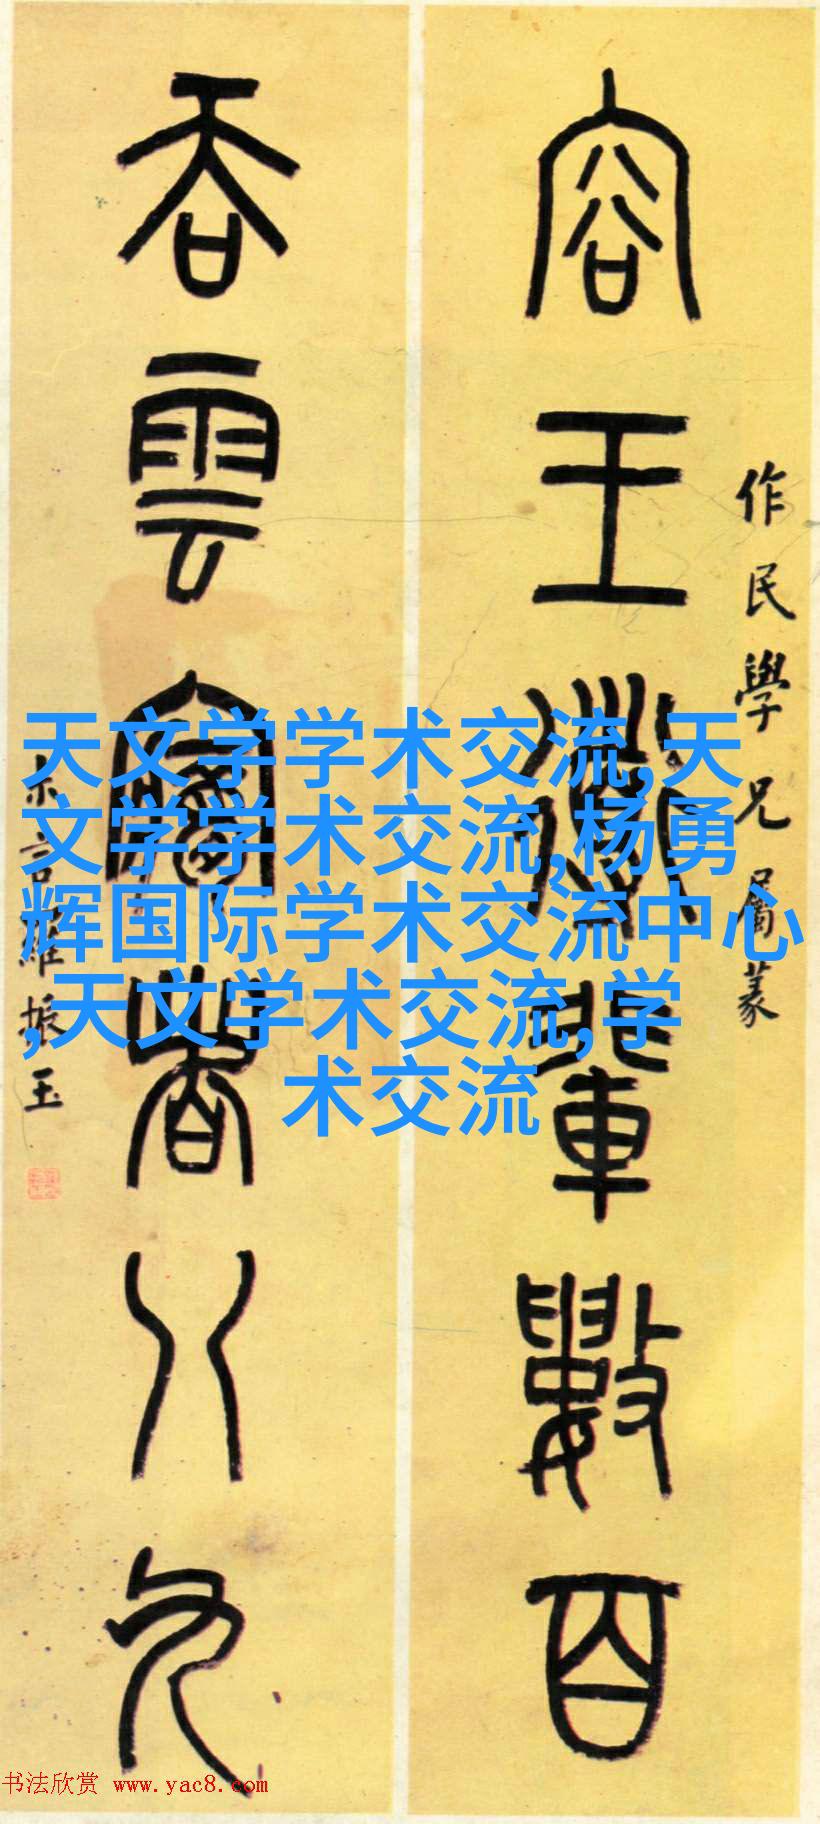 作民學兄屬篆
容王導輩數百
吞雲夢者八九
尗言羅振玉
天文学学术交流,天
文学学术交流,杨勇
辉国际学术交流中心
,天文学术交流,学
术交流
书法欣赏 www.yac8.com